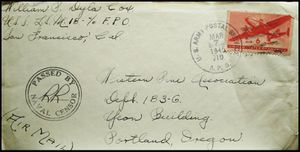 William S. Cox
U.S.S. L.S.M. 18- % F.P.O
San Francisco, Cal
U.S. ARMY POSTAL
MAR
7
194
A.P.O.
PASSED BY
NAVAL CENSOR
Western Pine Association
Dept. 183-G.
Yeon Building
Portland, Oregon
Air Mail